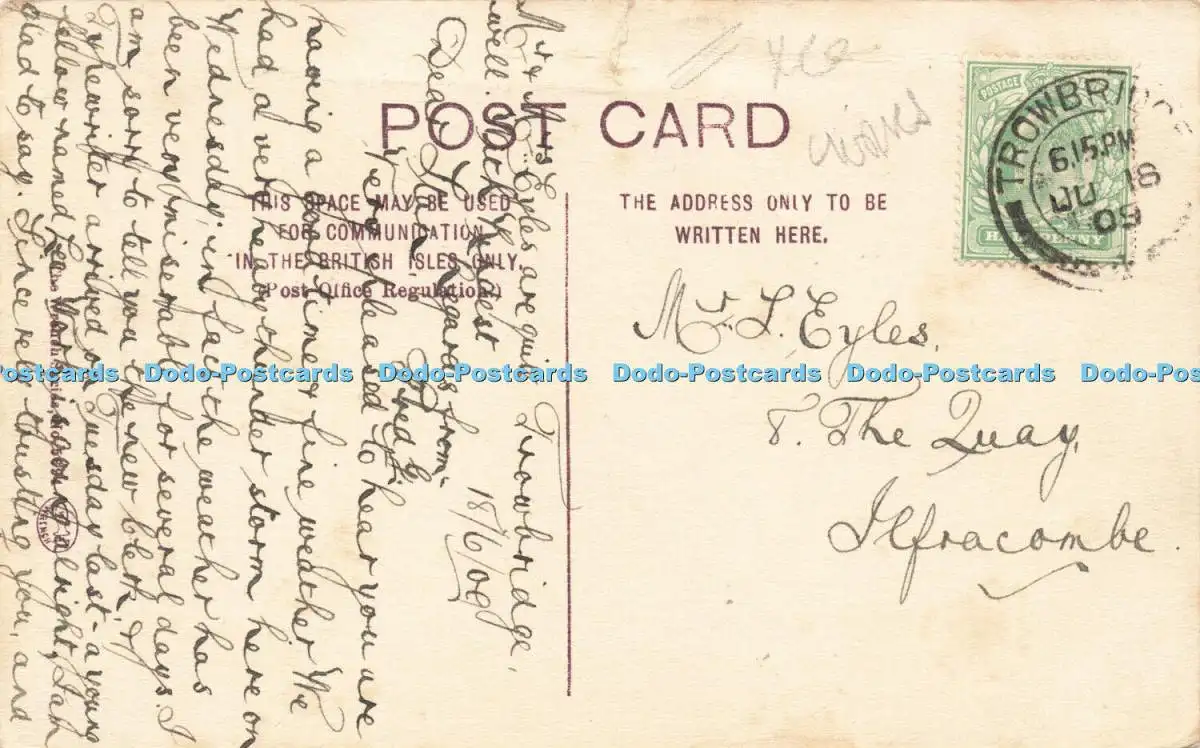 POST CARD
THIS SPACE MAY BE USED
FOR COMMUNICATION
IN THE BRITISH ISLES ONLY.
(Post Office Regulation.)
THE ADDRESS ONLY TO BE
WRITTEN HERE.
POSTAGE
HALFPENNY
TROWBRIDGE
6.15.PM
JU 18
09
Mr. L. Eyles,
8. The Quay,
Ilfracombe.
Trowbridge,
18/6/09
Dear
Very pleased to hear you are
having a good time & fine weather We
had a very heavy thunder storm here on
Wednesday, in fact the weather has
been very miserable for several days. I
am sorry to tell you the new clerk &
Typewriter arrived on Tuesday last - a young
fellow named
alright, I am
glad to say. Sincerely trusting you, and
Mr & Mrs Eyles are quite
well. With kindest
Regards from
Fred G.
Dodo-Postcards Dodo-Postcards Dodo-Postcards Dodo-Postcards Dodo-Postcards